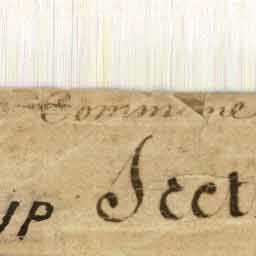 Commune
UP Sect